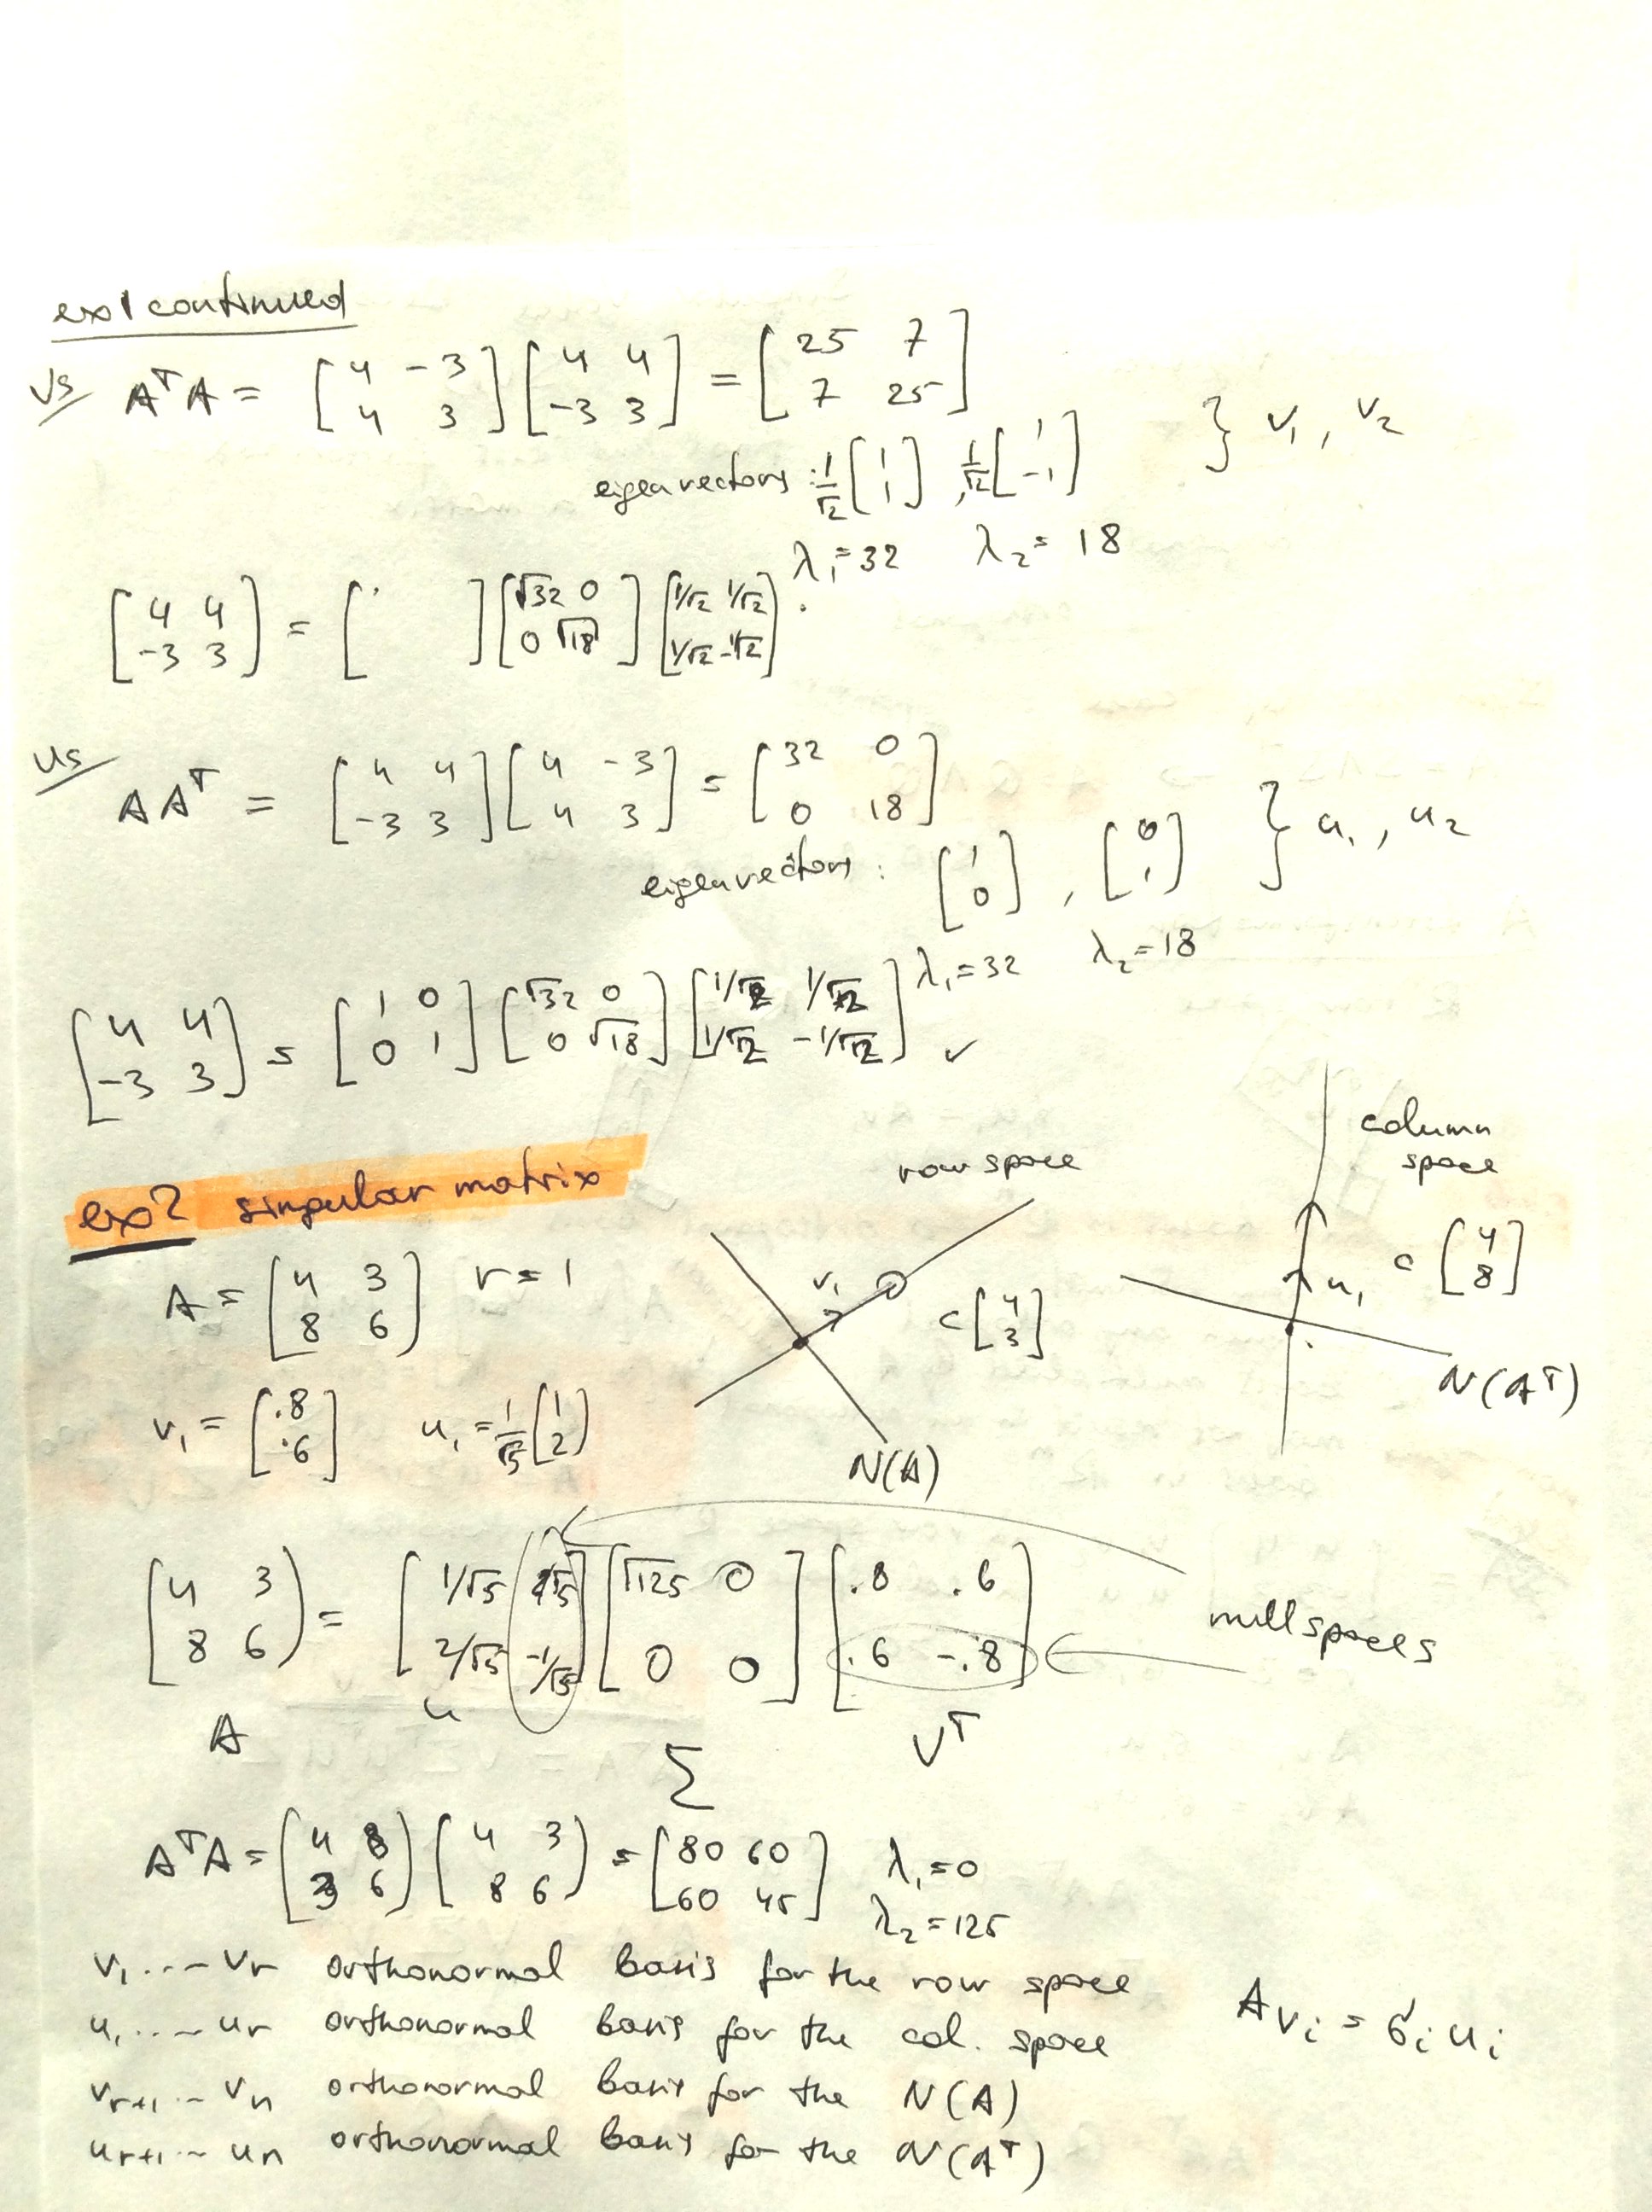 ex1 continued
Vs AᵀA = [4 -3; 4 3] [4 4; -3 3] = [25 7; 7 25]
eigenvectors: 1/√2 [1; 1], 1/√2 [1; -1] } v₁, v₂
λ₁=32 λ₂=18
[4 4; -3 3] = [ ] [√32 0; 0 √18] [1/√2 1/√2; 1/√2 -1/√2]
Us AAᵀ = [4 4; -3 3] [4 -3; 4 3] = [32 0; 0 18]
eigenvectors: [1; 0], [0; 1] } u₁, u₂
λ₁=32 λ₂=18
[4 4; -3 3] = [1 0; 0 1] [√32 0; 0 √18] [1/√2 1/√2; 1/√2 -1/√2] ✓
ex2 singular matrix
A = [4 3; 8 6] r=1
v₁ = [.8; .6] u₁ = 1/√5 [1; 2]
row space
v₁
c [4; 3]
N(A)
column
space
u₁
c [4; 8]
N(Aᵀ)
[4 3; 8 6] = [1/√5 2/√5; 2/√5 -1/√5] [√125 0; 0 0] [.8 .6; .6 -.8]
A u Σ Vᵀ
nullspaces
AᵀA = [4 8; 3 6] [4 3; 8 6] = [80 60; 60 45] λ₁=0
λ₂=125
v₁ ... vr orthonormal basis for the row space
u₁ ... ur orthonormal basis for the col. space
vr+1 ... vn orthonormal basis for the N(A)
ur+1 ... un orthonormal basis for the N(Aᵀ)
Avᵢ = σᵢuᵢ